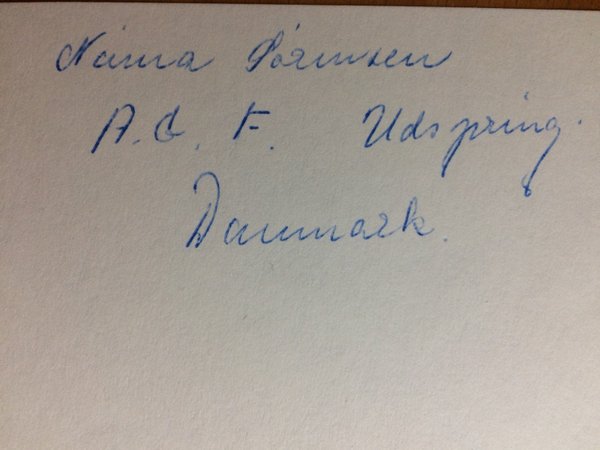 Naina Sörensen
A. G. F. Udspring.
Danmark.